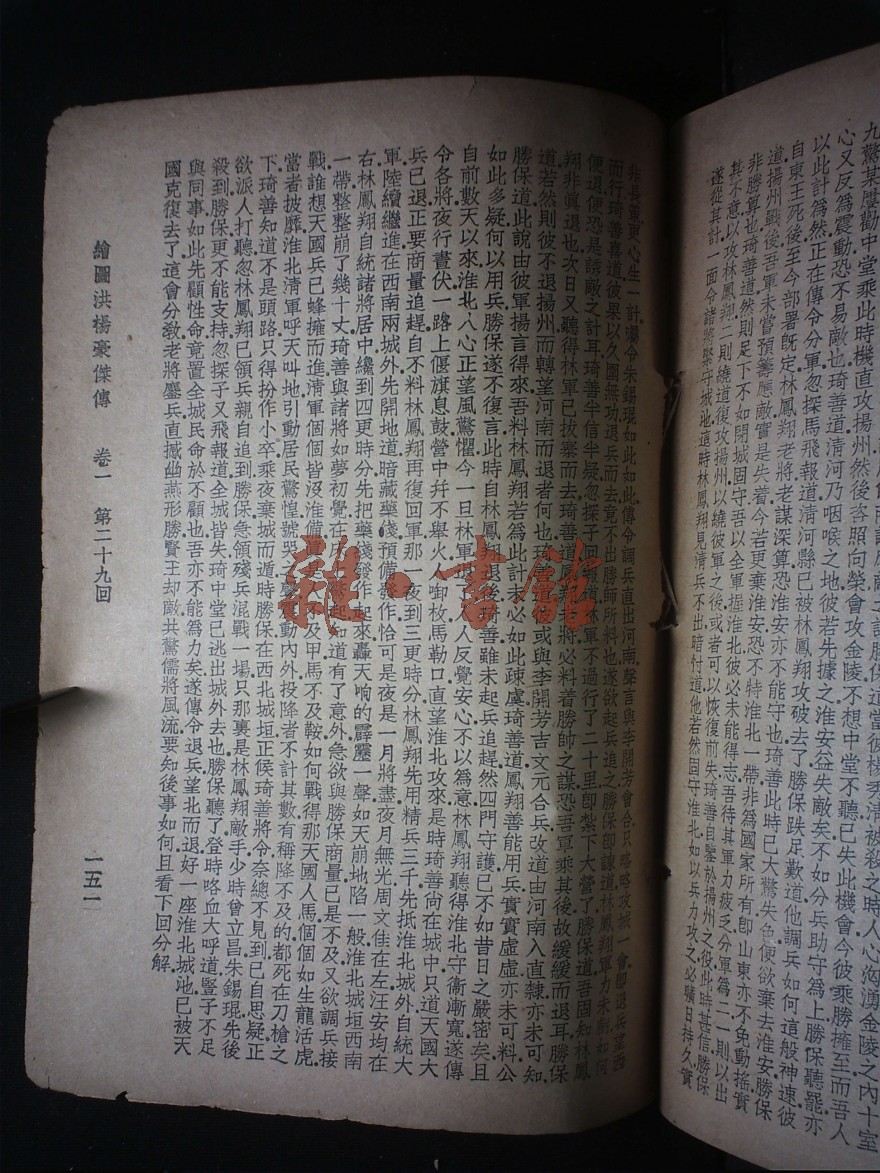 九驚某屢勸中堂乘此時機直攻揚州然後咨照向榮會攻金陵不想中堂不聽已失此機會今彼乘勝擁至而吾人
心又反為震動恐不易敵也琦善道清河乃咽喉之地彼若先據之淮安益失敵矣不如分兵助守為上勝保聽罷亦
以此計為然正在傳令分軍忽探馬飛報道清河縣已被林鳳翔攻破去了勝保跌足歎道他調兵如何這般神速彼
自東王死後至今部署旣定林鳳翔老將老謀深算恐淮安亦不能守也琦善此時已大驚失色便欲棄去淮安勝保
道揚州戰後吾軍未嘗預籌應敵實是失着今若更棄淮安恐不特淮北一帶非為國家所有卽山東亦不免動搖實
非勝算也琦善道然則足下不如閉城固守吾以全軍握淮北彼必未能得志吾待其軍力疲乏分軍為二一則以出
其不意以攻林鳳翔二則繞道復攻揚州以繞彼軍之後或者可以恢復前失琦善自鑒於揚州之役此時甚信勝保
遂從其計一面令諸將緊守城池這時林鳳翔見清兵不出暗忖道他若然固守淮北如以兵力攻之必曠日持久實
非長策更心生一計囑令朱錫琨如此如此傳令調兵直出河南聲言與李開芳會合只略略攻城一會卽退兵望西
而行琦善喜道彼果以久圍無功退兵而去竟不出勝師所料也遂欲起兵追之勝保卽諫道林鳳翔軍力未衰如何
便退便恐是誘敵之計耳琦善半信半疑忽探子回報道林軍不過行了二十里卽紮下大營了勝保道吾固知林鳳
翔非眞退也次日又聽得林軍已拔寨而去琦善道鳳翔老將必料着勝帥之謀恐吾軍乘其後故緩緩而退耳勝保
道若然則彼不退揚州而轉望河南而退者何也琦善道彼或與李開芳吉文元合兵改道由河南入直隸亦未可知
勝保道此說由彼軍揚言得來吾料林鳳翔若為此計未必如此疎虞琦善道鳳翔善能用兵實實虛虛亦未可料公
如此多疑何以用兵勝保遂不復言此時自林鳳翔退後琦善雖未起兵追趕然四門守護已不如昔日之嚴密矣且
自前數天以來淮北人心正望風驚懼今一旦林軍退人人反覺安心不以為意林鳳翔聽得淮北守衞漸寬遂傳
令各將夜行晝伏一路上偃旗息鼓營中幷不舉火人啣枚馬勒口直望淮北攻來是時琦善尚在城中只道天國大
兵已退正要商量追趕自不料林鳳翔再復回軍那一夜到三更時分林鳳翔先用精兵三千先抵淮北城外自統大
軍陸續繼進在西南兩城外先開地道暗藏藥綫預備發作恰可是夜是一月將盡夜月無光周文佳在左汪安均在
右林鳳翔自統諸將居中纔到四更時分先把藥綫發作起來轟天响的霹靂一聲如天崩地陷一般淮北城垣西南
一帶整整崩了幾十丈琦善與諸將如夢初覺在夢中驚起知道有了意外急欲與勝保商量已是不及又欲調兵接
戰誰想天國兵已蜂擁而進清軍個個皆沒准備真是人不及甲馬不及鞍如何戰得那天國人馬個個如生龍活虎
當者披靡淮北清軍呼天叫地引動居民驚惶號哭之聲震動內外投降者不計其數有稱降不及的都死在刀槍之
下琦善知道不是頭路只得扮作小卒乘夜棄城而遁時勝保在西北城垣正候琦善將令奈總不見到已自思疑正
欲派人打聽忽林鳳翔已領兵親自追到勝保急領殘兵混戰一場只那裏是林鳳翔敵手少時曾立昌朱錫琨先後
殺到勝保更不能支持忽探子又飛報道全城皆失琦中堂已逃出城外去也勝保聽了登時咯血大呼道豎子不足
與同事如此先顧性命竟置全城民命於不顧也吾亦不能為力矣遂傳令退兵望北而退好一座淮北城池已被天
國克復去了這會分敎老將鏖兵直撼幽燕形勝賢王却敵共驚儒將風流要知後事如何且看下回分解
繪圖洪楊豪傑傳　卷一　第二十九回
一五一
雜·書館